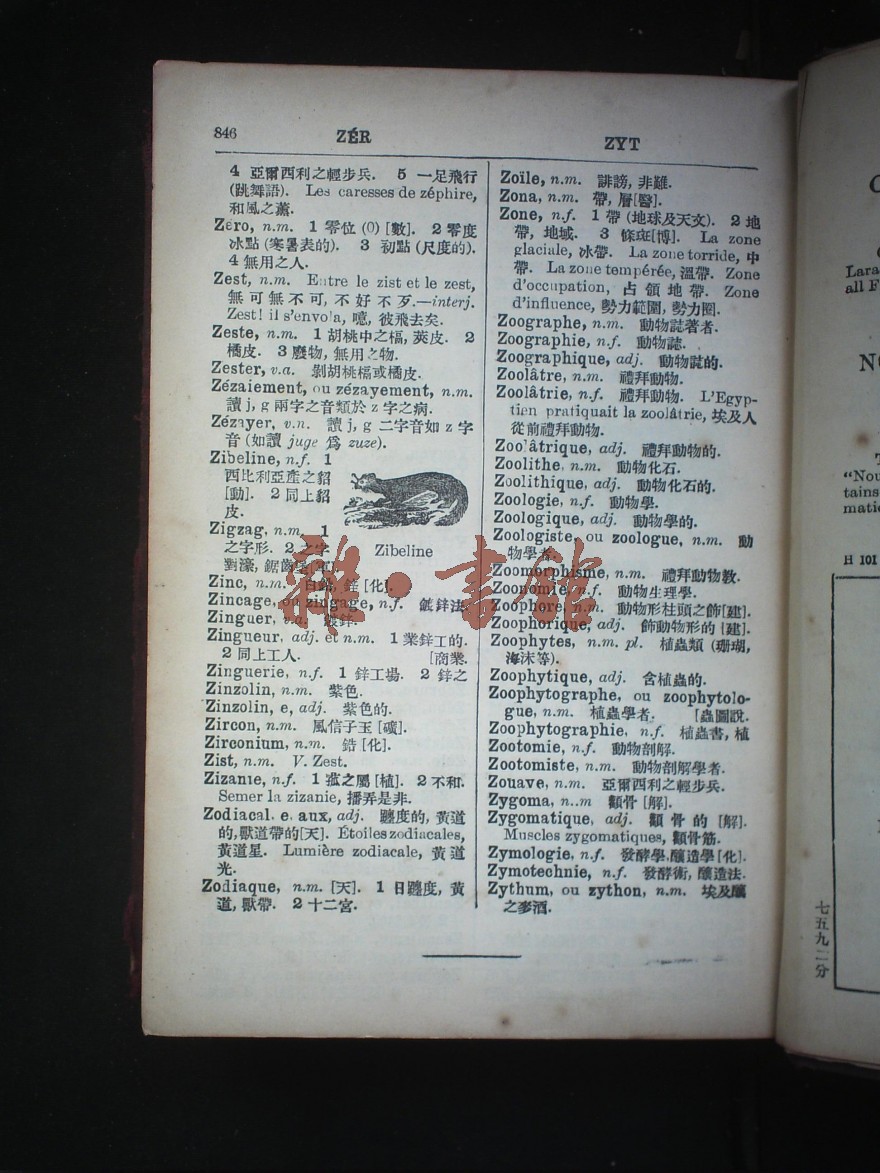 846
ZÉR
ZYT
4 亞爾西利之輕步兵. 5 一足飛行
(跳舞語). Les caresses de zéphire,
和風之薰.
Zéro, n.m. 1 零位 (0) [數]. 2 零度
冰點 (寒暑表的). 3 初點 (尺度的).
4 無用之人.
Zest, n.m. Entre le zist et le zest,
無可無不可, 不好不歹.—interj.
Zest! il s'envola, 噫, 彼飛去矣.
Zeste, n.m. 1 胡桃中之槅, 莢皮. 2
橘皮. 3 廢物, 無用之物.
Zester, v.a. 剝胡桃槅或橘皮.
Zézaiement, ou zézayement, n.m.
讀 j, g 兩字之音類於 z 字之病.
Zézayer, v.n. 讀 j, g 二字音如 z 字
音 (如讀 juge 爲 zuze).
Zibeline, n.f. 1
西比利亞產之貂
[動]. 2 同上貂
皮.
Zibeline
Zigzag, n.m. 1
之字形. 2 之字
對濠, 鋸齒
Zinc, n.m. 白鉛, 鋅 [化].
Zincage, ou zingage, n.f. 鍍鋅法
Zinguer, v.a. 鍍鋅.
Zingueur, adj. et n.m. 1 業鋅工的.
2 同上工人. [商業.
Zinguerie, n.f. 1 鋅工場. 2 鋅之
Zinzolin, n.m. 紫色.
Zinzolin, e, adj. 紫色的.
Zircon, n.m. 風信子玉 [礦].
Zirconium, n.m. 鋯 [化].
Zist, n.m. V. Zest.
Zizanie, n.f. 1 菰之屬 [植]. 2 不和.
Semer la zizanie, 播弄是非.
Zodiacal, e, aux, adj. 躔度的, 黃道
的, 獸道帶的 [天]. Étoiles zodiacales,
黃道星. Lumière zodiacale, 黃道
光.
Zodiaque, n.m. [天]. 1 日躔度, 黃
道, 獸帶. 2 十二宮.
Zoïle, n.m. 誹謗, 非難.
Zona, n.m. 帶, 層 [醫].
Zone, n.f. 1 帶 (地球及天文). 2 地
帶, 地域. 3 條斑 [博]. La zone
glaciale, 冰帶. La zone torride, 中
帶. La zone tempérée, 溫帶. Zone
d'occupation, 占領地帶. Zone
d'influence, 勢力範圍, 勢力圈.
Zoographe, n.m. 動物誌著者.
Zoographie, n.f. 動物誌.
Zoographique, adj. 動物誌的.
Zoolâtre, n.m. 禮拜動物.
Zoolâtrie, n.f. 禮拜動物. L'Egyp-
tien pratiquait la zoolâtrie, 埃及人
從前禮拜動物.
Zoolâtrique, adj. 禮拜動物的.
Zoolithe, n.m. 動物化石.
Zoolithique, adj. 動物化石的.
Zoologie, n.f. 動物學.
Zoologique, adj. 動物學的.
Zoologiste, ou zoologue, n.m. 動
物學者.
Zoomorphisme, n.m. 禮拜動物教.
Zoonomie, n.f. 動物生理學.
Zoophore, n.m. 動物形柱頭之飾 [建].
Zoophorique, adj. 飾動物形的 [建].
Zoophytes, n.m. pl. 植蟲類 (珊瑚,
海沫等).
Zoophytique, adj. 含植蟲的.
Zoophytographe, ou zoophytolo-
gue, n.m. 植蟲學者. [蟲圖說.
Zoophytographie, n.f. 植蟲書, 植
Zootomie, n.f. 動物剖解.
Zootomiste, n.m. 動物剖解學者.
Zouave, n.m. 亞爾西利之輕步兵.
Zygoma, n..m 顴骨 [解].
Zygomatique, adj. 顴骨的 [解].
Muscles zygomatiques, 顴骨筋.
Zymologie, n.f. 發酵學, 釀造學 [化].
Zymotechnie, n.f. 發酵術, 釀造法.
Zythum, ou zython, n.m. 埃及釀
之麥酒.
雜·書館
Lara
all F
"Nou
tains
matic
H 101
七五九二分